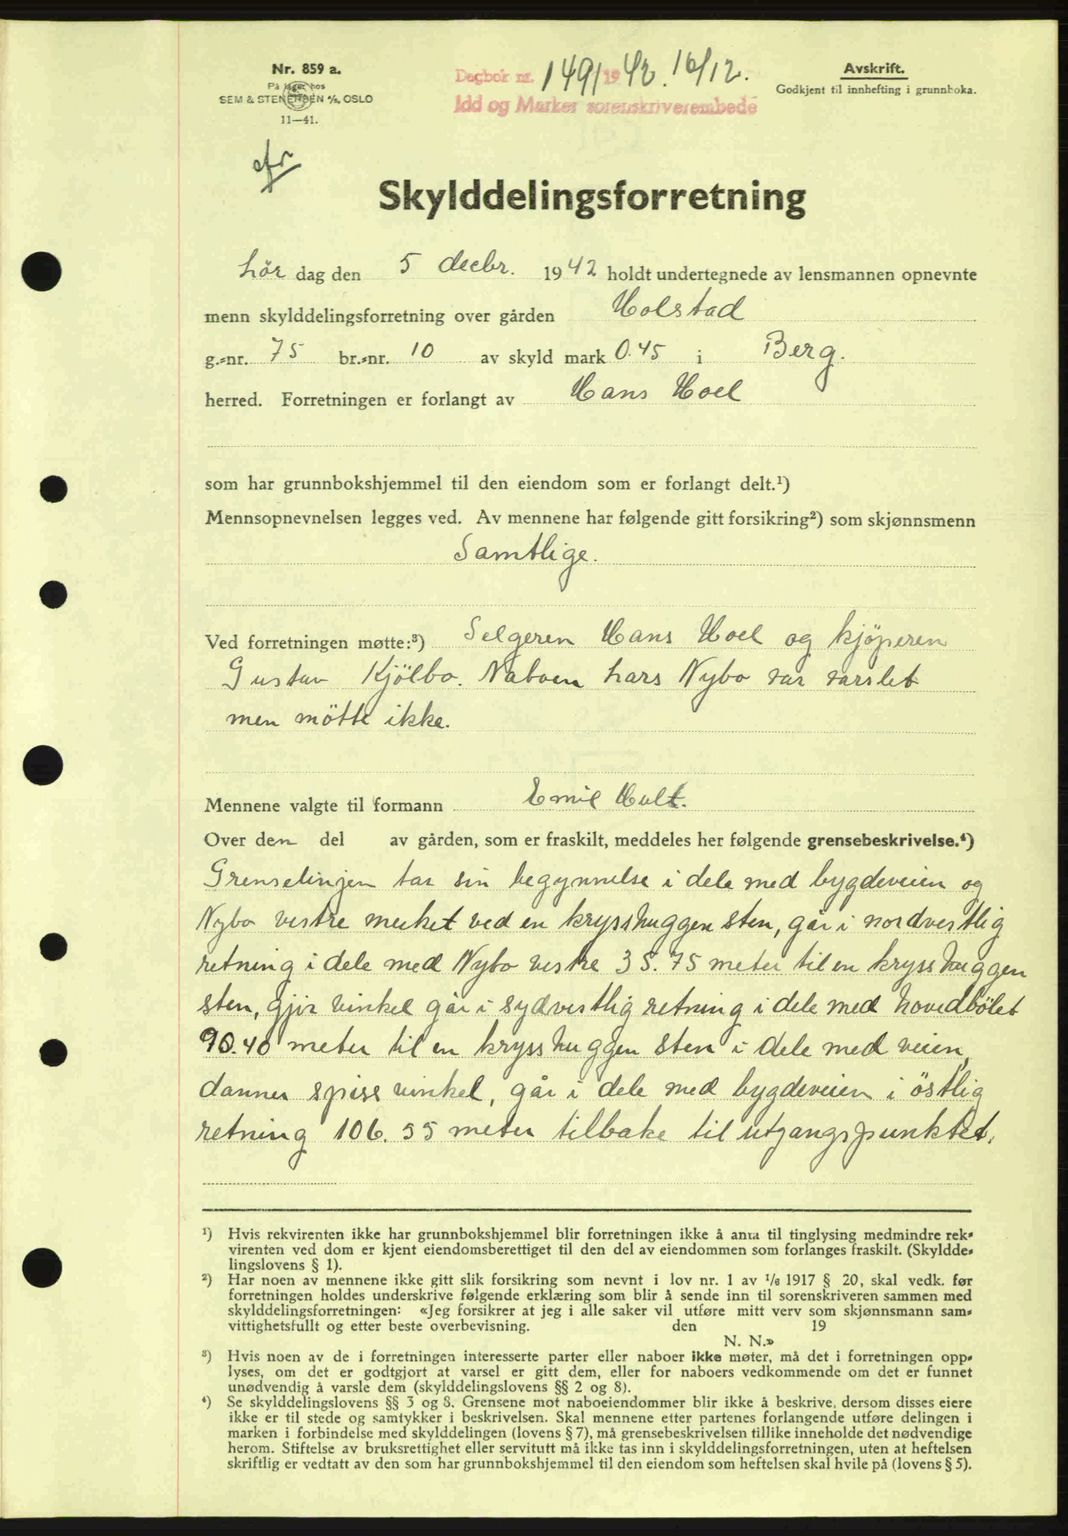 Nr. 859 a.
På lager hos
SEM & STENERSEN A/S, OSLO
11—41.
Dagbok nr. 1491 1942. 16/12.
Idd og Marker sorenskriverembede
Avskrift.
Godkjent til innhefting i grunnboka.
Skylddelingsforretning
Lör dag den 5 decbr. 1942 holdt undertegnede av lensmannen opnevnte
menn skylddelingsforretning over gården Holstad
g.-nr. 75 br.-nr. 10 av skyld mark 0.45 i Berg.
herred. Forretningen er forlangt av Hans Hoel
som har grunnbokshjemmel til den eiendom som er forlangt delt.¹)
Mennsopnevnelsen legges ved. Av mennene har følgende gitt forsikring²) som skjønnsmenn
Samtlige.
Ved forretningen møtte:³) Selgeren Hans Hoel og kjöperen
Gustav Kjölbo. Naboen Lars Nybo var varslet
men mötte ikke.
Mennene valgte til formann Emil Hult.
Over den del av gården, som er fraskilt, meddeles her følgende grensebeskrivelse.⁴)
Grenselinjen tar sin begynnelse i dele med bygdeveien og
Nybo vestre merket ved en krysshuggen sten, går i nordvestlig
retning i dele med Nybo vestre 35.75 meter til en krysshuggen
sten, gjör vinkel går i sydvestlig retning i dele med hovedbölet
90.40 meter til en krysshuggen sten i dele med veien,
danner spiss vinkel, går i dele med bygdeveien i östlig
retning 106.55 meter tilbake til utgangspunktet.
¹) Hvis rekvirenten ikke har grunnbokshjemmel blir forretningen ikke å anta til tinglysing medmindre rek-
virenten ved dom er kjent eiendomsberettiget til den del av eiendommen som forlanges fraskilt. (Skyldde-
lingslovens § 1).
²) Har noen av mennene ikke gitt slik forsikring som nevnt i lov nr. 1 av 1/6 1917 § 20, skal vedk. før
forretningen holdes underskrive følgende erklæring som blir å sende inn til sorenskriveren sammen med
skylddelingsforretningen: «Jeg forsikrer at jeg i alle saker vil utføre mitt verv som skjønnsmann sam-
vittighetsfullt og etter beste overbevisning. den 19
N. N.»
³) Hvis noen av de i forretningen interesserte parter eller naboer ikke møter, må det i forretningen opp-
lyses, om det er godtgjort at varsel er gitt dem, eller for naboers vedkommende om det er funnet
unødvendig å varsle dem (skylddelingslovens §§ 2 og 8).
⁴) Se skylddelingslovens §§ 3 og 8. Grensene mot naboeiendommer blir ikke å beskrive, dersom disses eiere
ikke er til stede og samtykker i beskrivelsen. Skal mennene etter partenes forlangende utføre delingen i
marken i forbindelse med skylddelingen (lovens § 7), må grensebeskrivelsen tillike inneholde det nødvendige
herom. Stiftelse av bruksrettighet eller servitutt må ikke tas inn i skylddelingsforretningen, uten at heftelsen
skriftlig er vedtatt av den som har grunnbokshjemmel til den eiendom som heftelsen skal hvile på (lovens § 5).